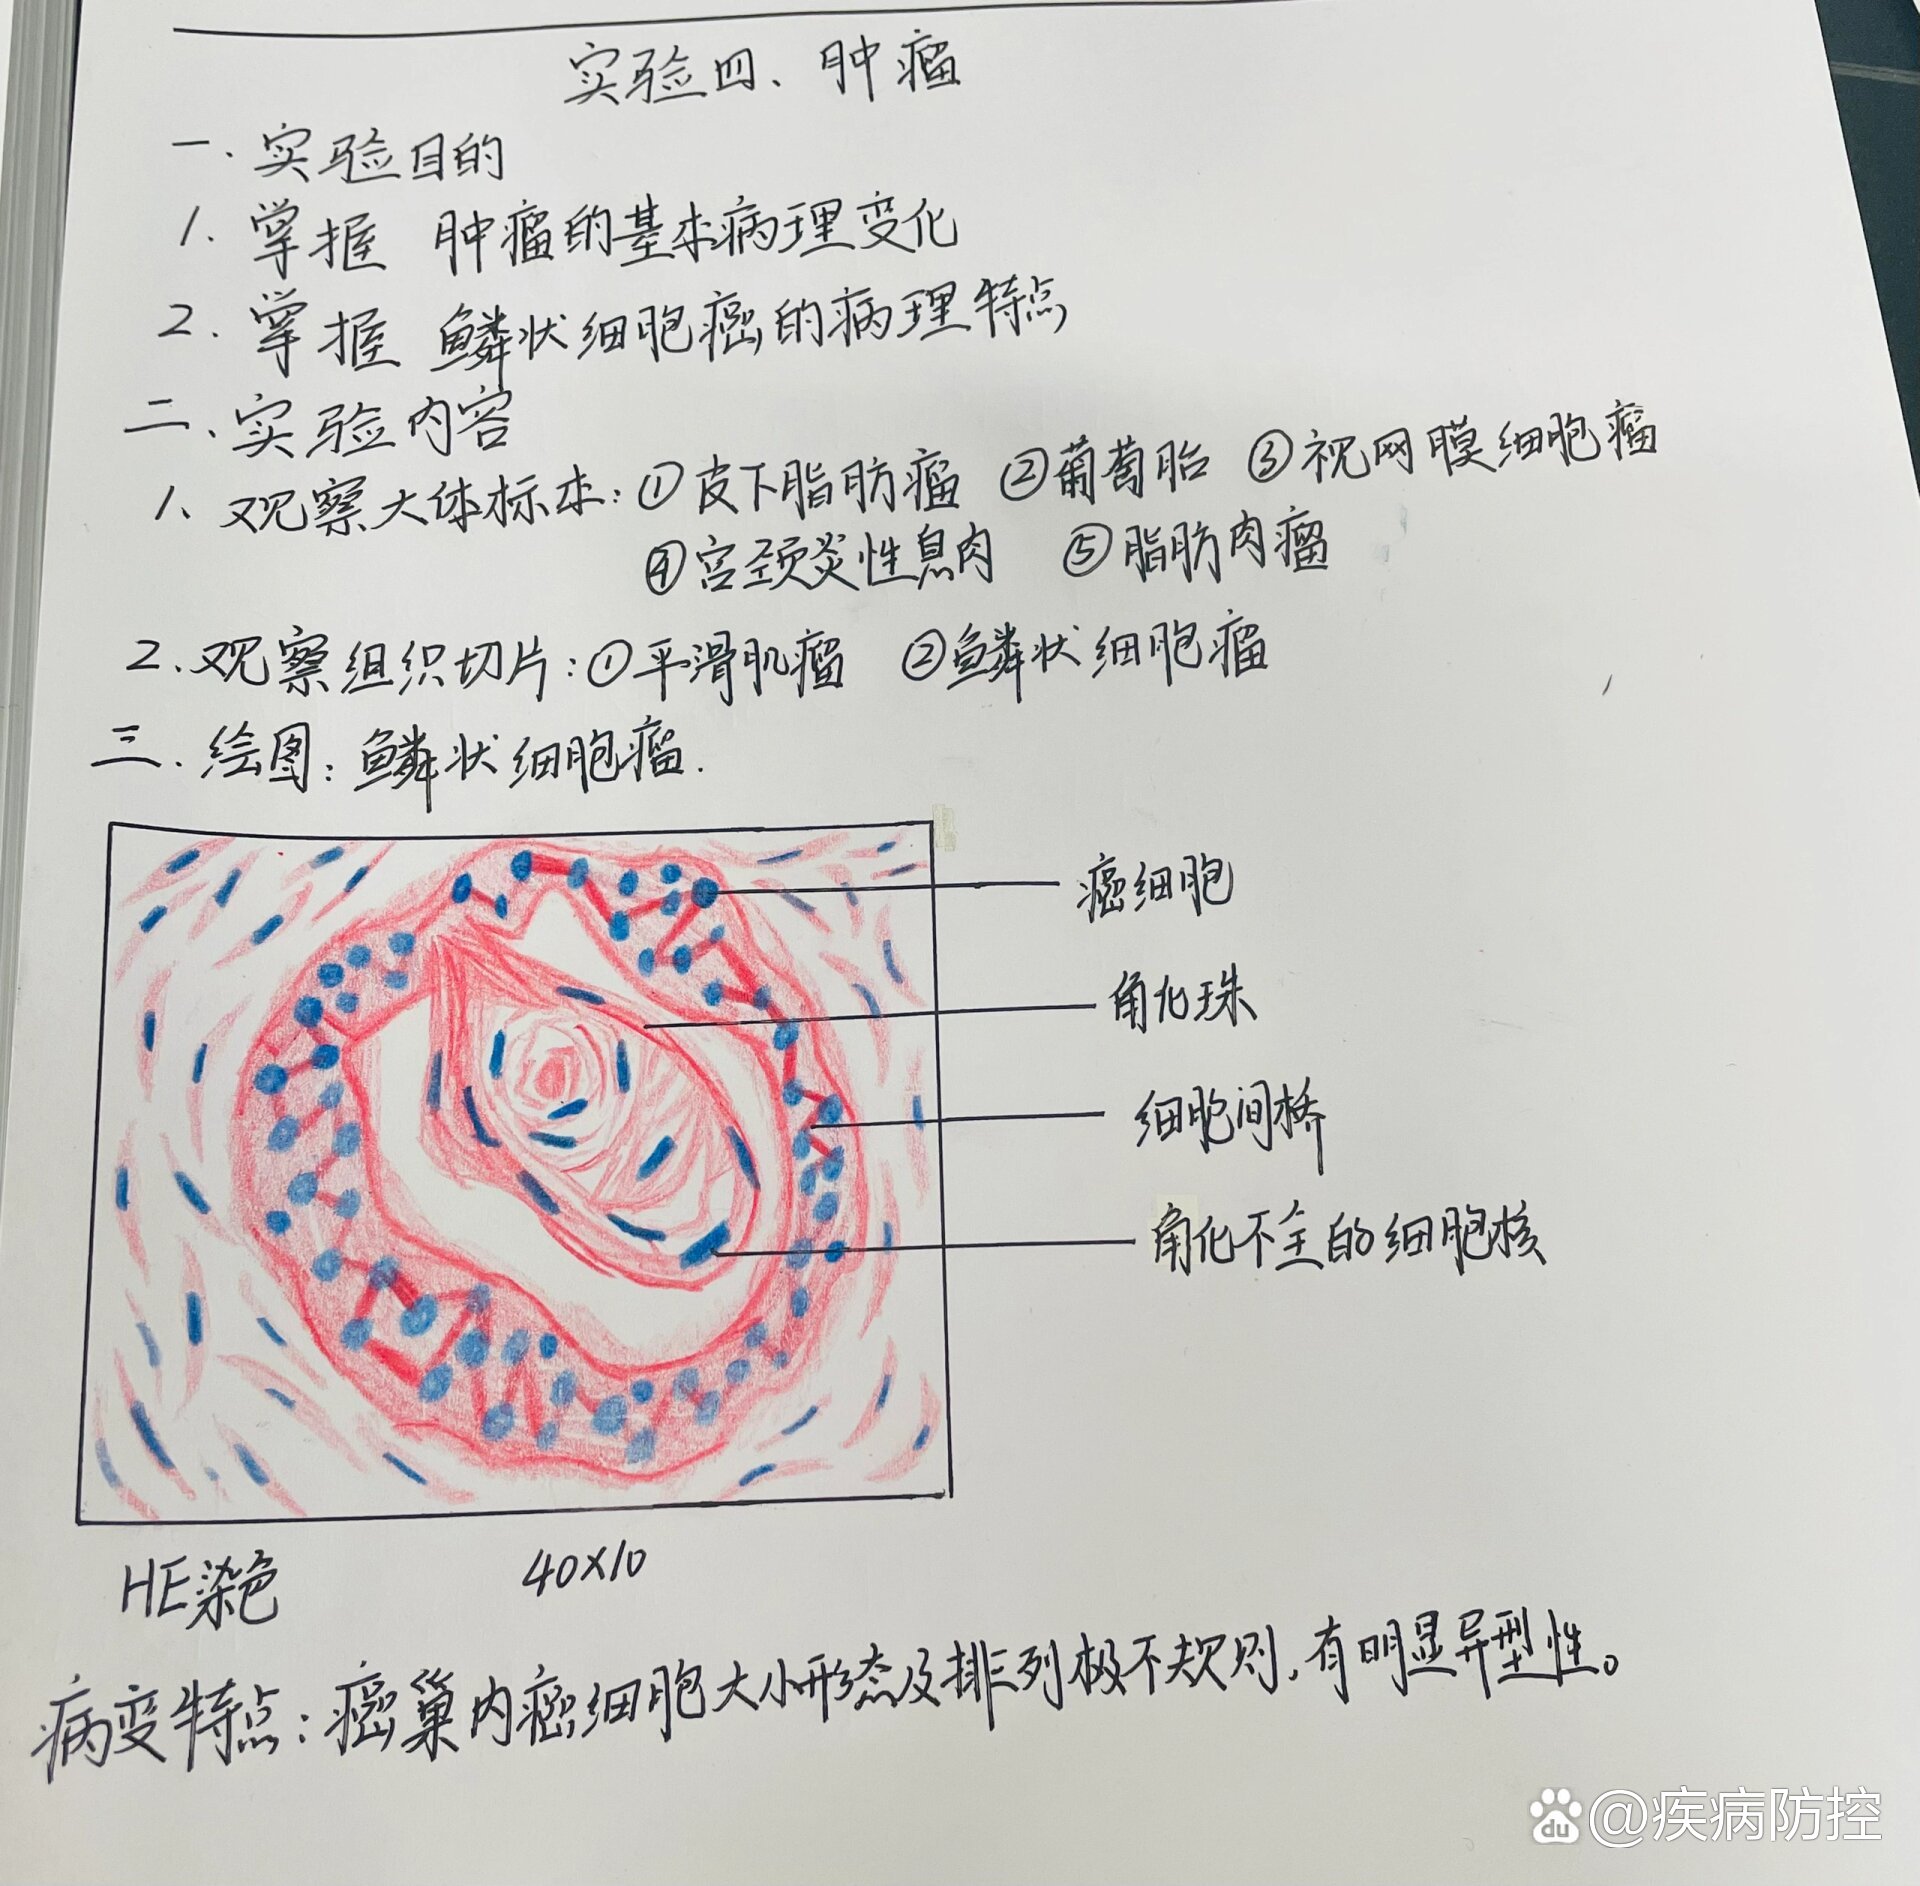 实验四、肿瘤
一、实验目的
1. 掌握 肿瘤的基本病理变化
2. 掌握 鳞状细胞癌的病理特点
二、实验内容
1、观察大体标本：①皮下脂肪瘤 ②葡萄胎 ③视网膜细胞瘤
④宫颈炎性息肉 ⑤脂肪肉瘤
2. 观察组织切片：①平滑肌瘤 ②鳞状细胞瘤
三、绘图：鳞状细胞瘤.
癌细胞
角化珠
细胞间桥
角化不全的细胞核
HE染色 40×10
病变特点：癌巢内癌细胞大小形态及排列极不规则，有明显异型性。
du @疾病防控